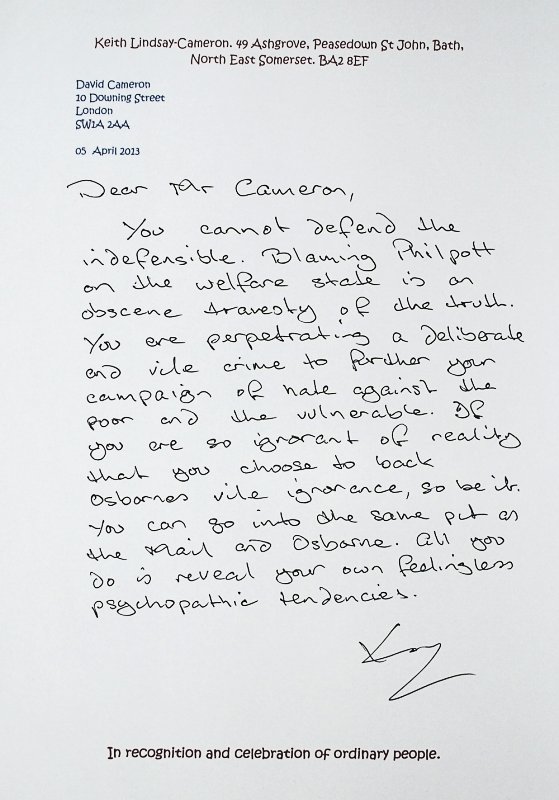 Keith Lindsay-Cameron. 49 Ashgrove, Peasedown St John, Bath,
North East Somerset. BA2 8EF
David Cameron
10 Downing Street
London
SW1A 2AA
05 April 2013
Dear Mr Cameron,
You cannot defend the
indefensible. Blaming Philpott
on the welfare state is an
obscene travesty of the truth.
You are perpetrating a deliberate
and vile crime to further your
campaign of hate against the
poor and the vulnerable. If
you are so ignorant of reality
that you choose to back
Osbornes vile ignorance, so be it.
You can go into the same pit as
the Mail and Osborne. All you
do is reveal your own feelingless
psychopathic tendencies.
In recognition and celebration of ordinary people.